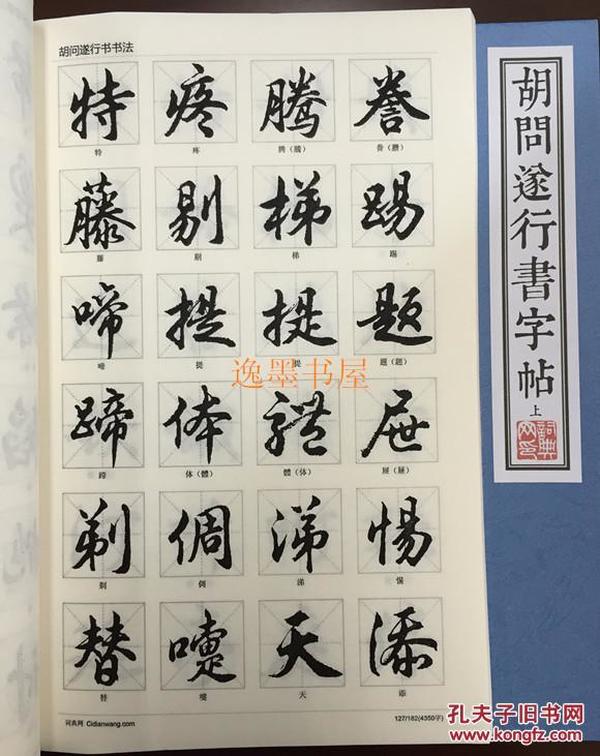 胡问遂行书书法
特 疼 腾 誊
特 疼 腾(騰) 誊(謄)
藤 剔 梯 踢
藤 剔 梯 踢
啼 提 提 题
啼 提 提 题(題)
蹄 体 體 屉
蹄 体(體) 體(体) 屉(屜)
剃 倜 涕 惕
剃 倜 涕 惕
替 嚏 天 添
替 嚏 天 添
词典网 Cidianwang.com
127/182(4350字)
胡問遂行書字帖
上
詞典网印
逸墨书屋
孔夫子旧书网
www.kongfz.com